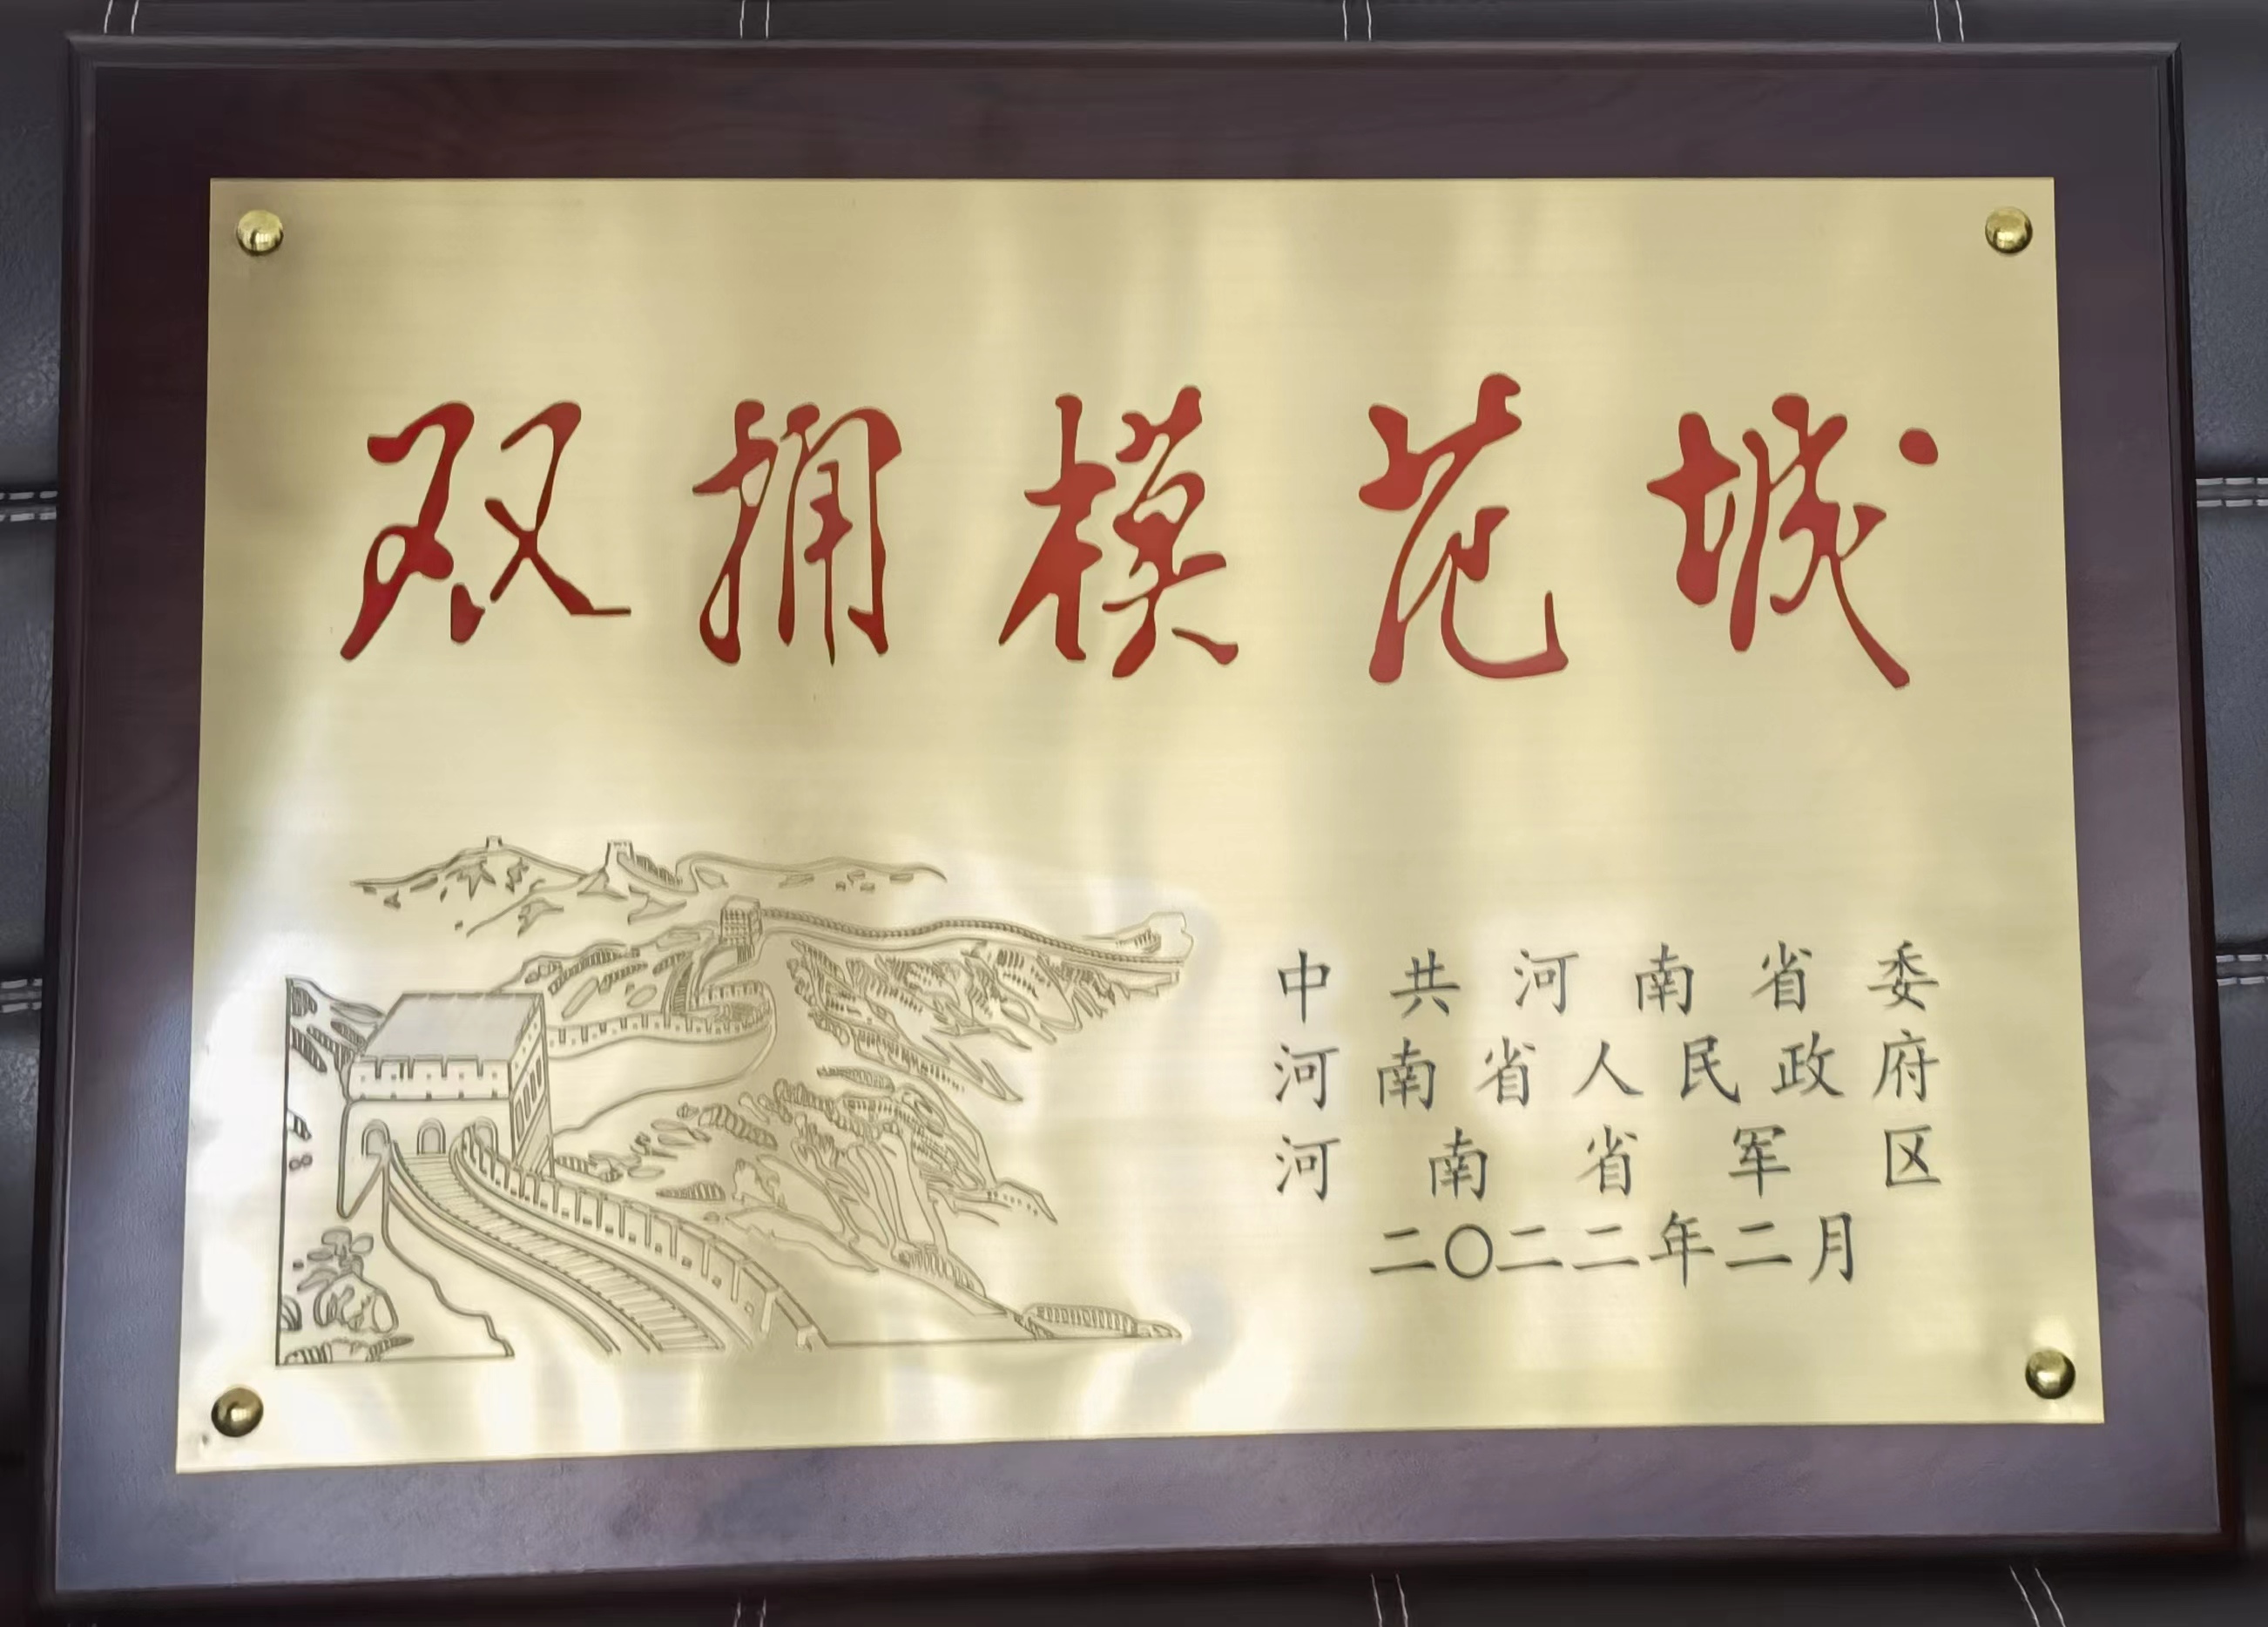 双拥模范城
中共河南省委
河南省人民政府
河南省军区
二〇二二年二月